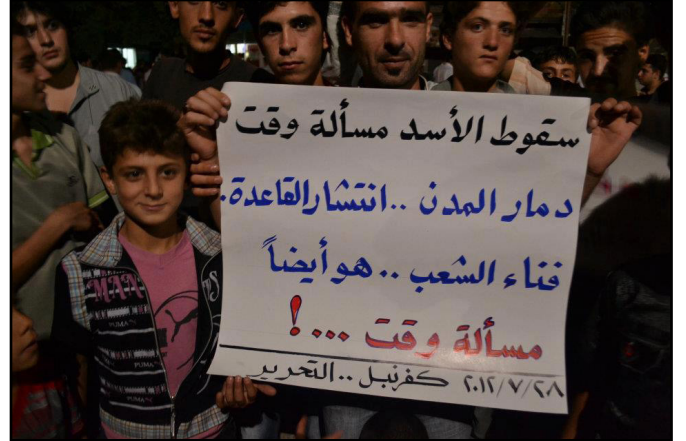 سقوط الأسد مسألة وقت
دمار المدن .. انتشار القاعدة.
فناء الشعب .. هو أيضاً
مسألة وقت ...!
٢٠١٢/٧/٢٨ كفرنبل .. التحرير
PUMA